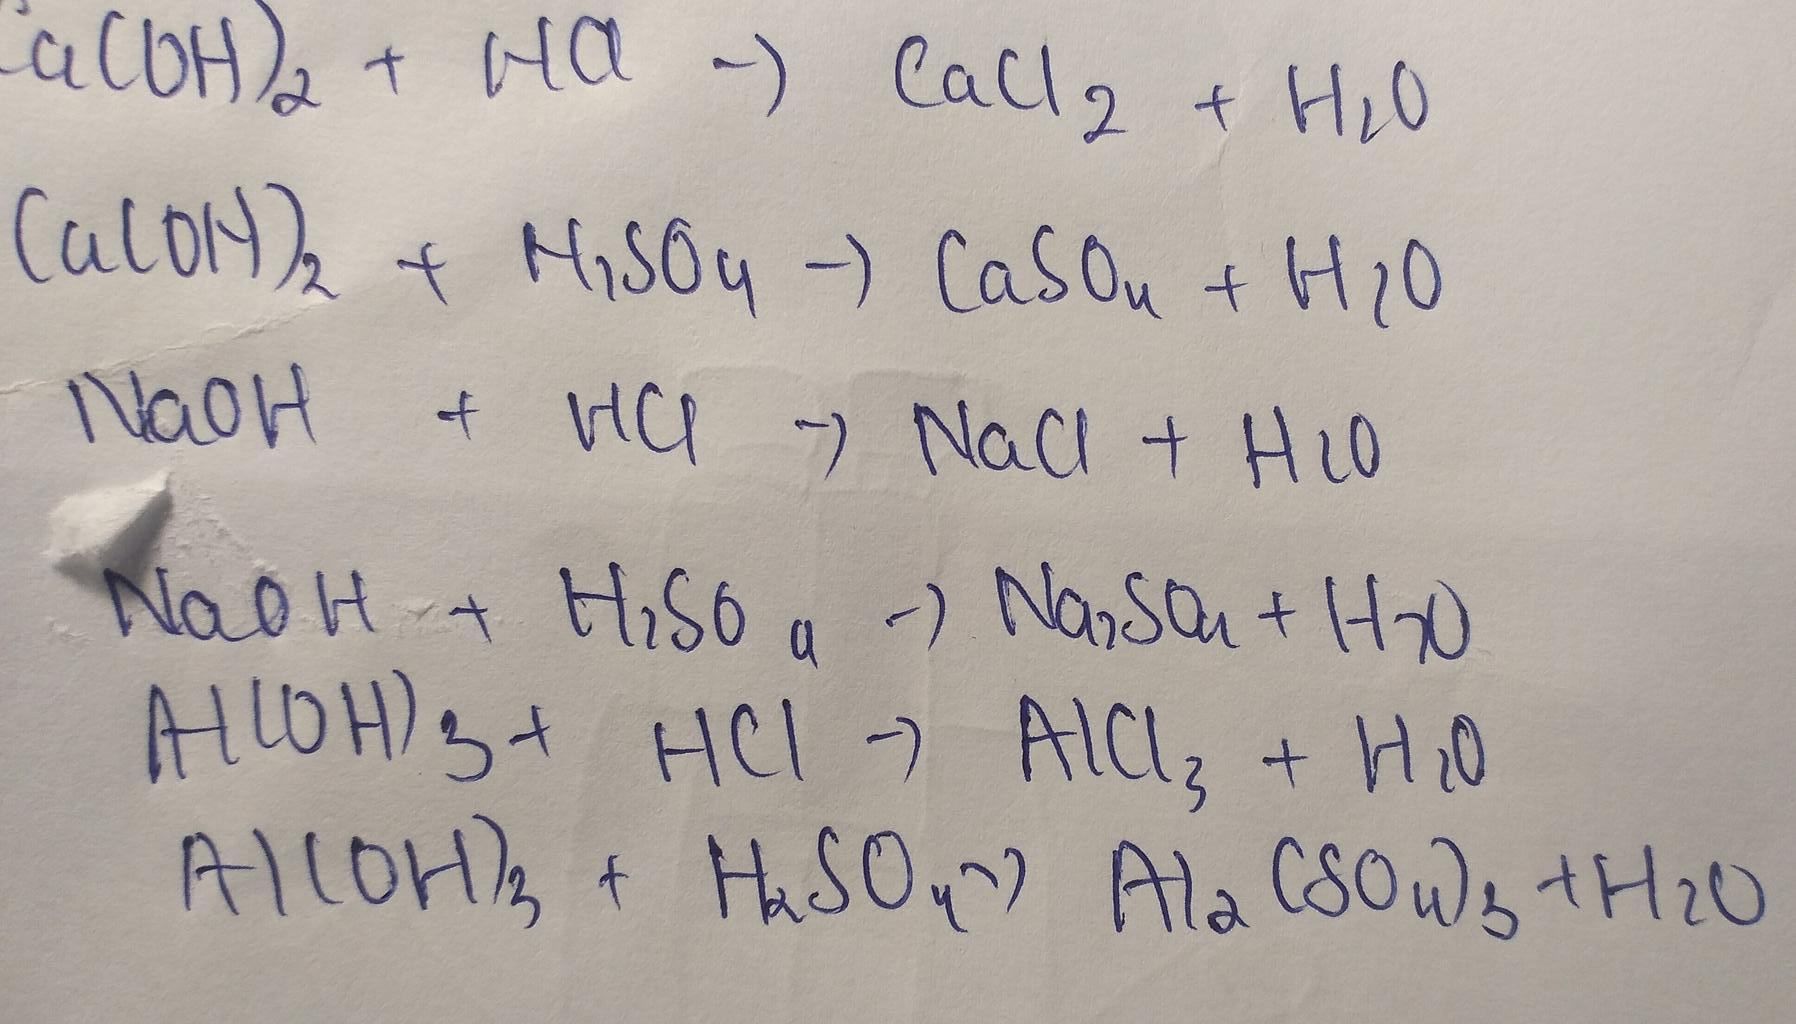 Ca(OH)₂ + HCl -> CaCl₂ + H₂O
Ca(OH)₂ + H₂SO₄ -> CaSO₄ + H₂O
NaOH + HCl -> NaCl + H₂O
NaOH + H₂SO₄ -> Na₂SO₄ + H₂O
Al(OH)₃ + HCl -> AlCl₃ + H₂O
Al(OH)₃ + H₂SO₄ -> Al₂(SO₄)₃ + H₂O